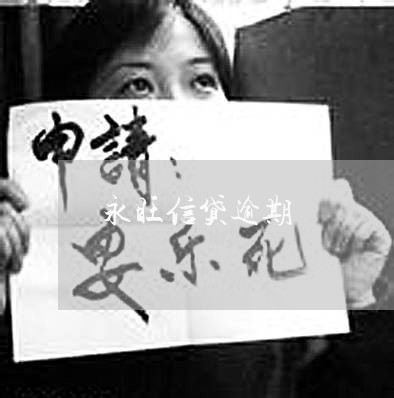 申請：
永旺信贷逾期
要乐死